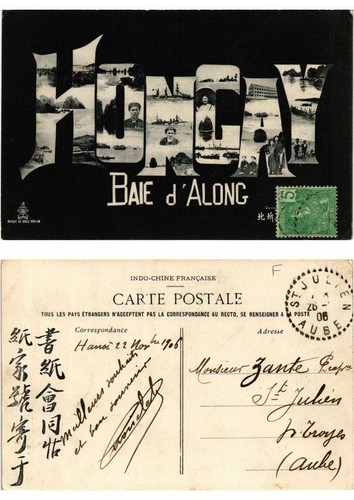 HONGAY
BAIE d'ALONG
5
INDO-CHINE FRANÇAISE
CARTE POSTALE
TOUS LES PAYS ÉTRANGERS N'ACCEPTENT PAS LA CORRESPONDANCE AU RECTO, SE RENSEIGNER A LA POSTE
Correspondance
Adresse
F
ST JULIEN
26
06
AUBE
Hanoï 22 Novbre 1906
Meilleurs souhaits
et bon souvenir
Monsieur Zante
St Julien
p. Troyes
(Aube)
書紙會同帖
紙家號寄于